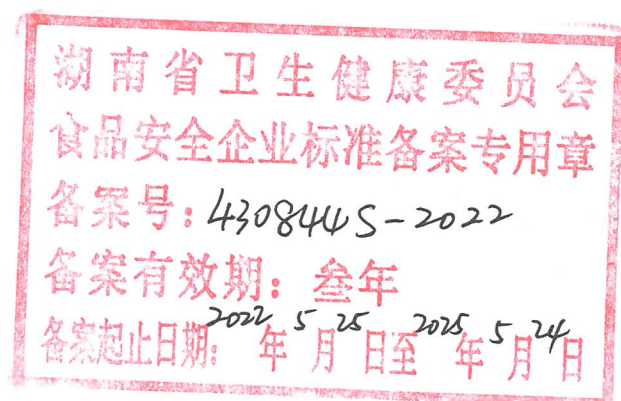 湖南省卫生健康委员会
食品安全企业标准备案专用章
备案号：430844S-2022
备案有效期：叁年
备案起止日期：2022年5月25日至2025年5月24日